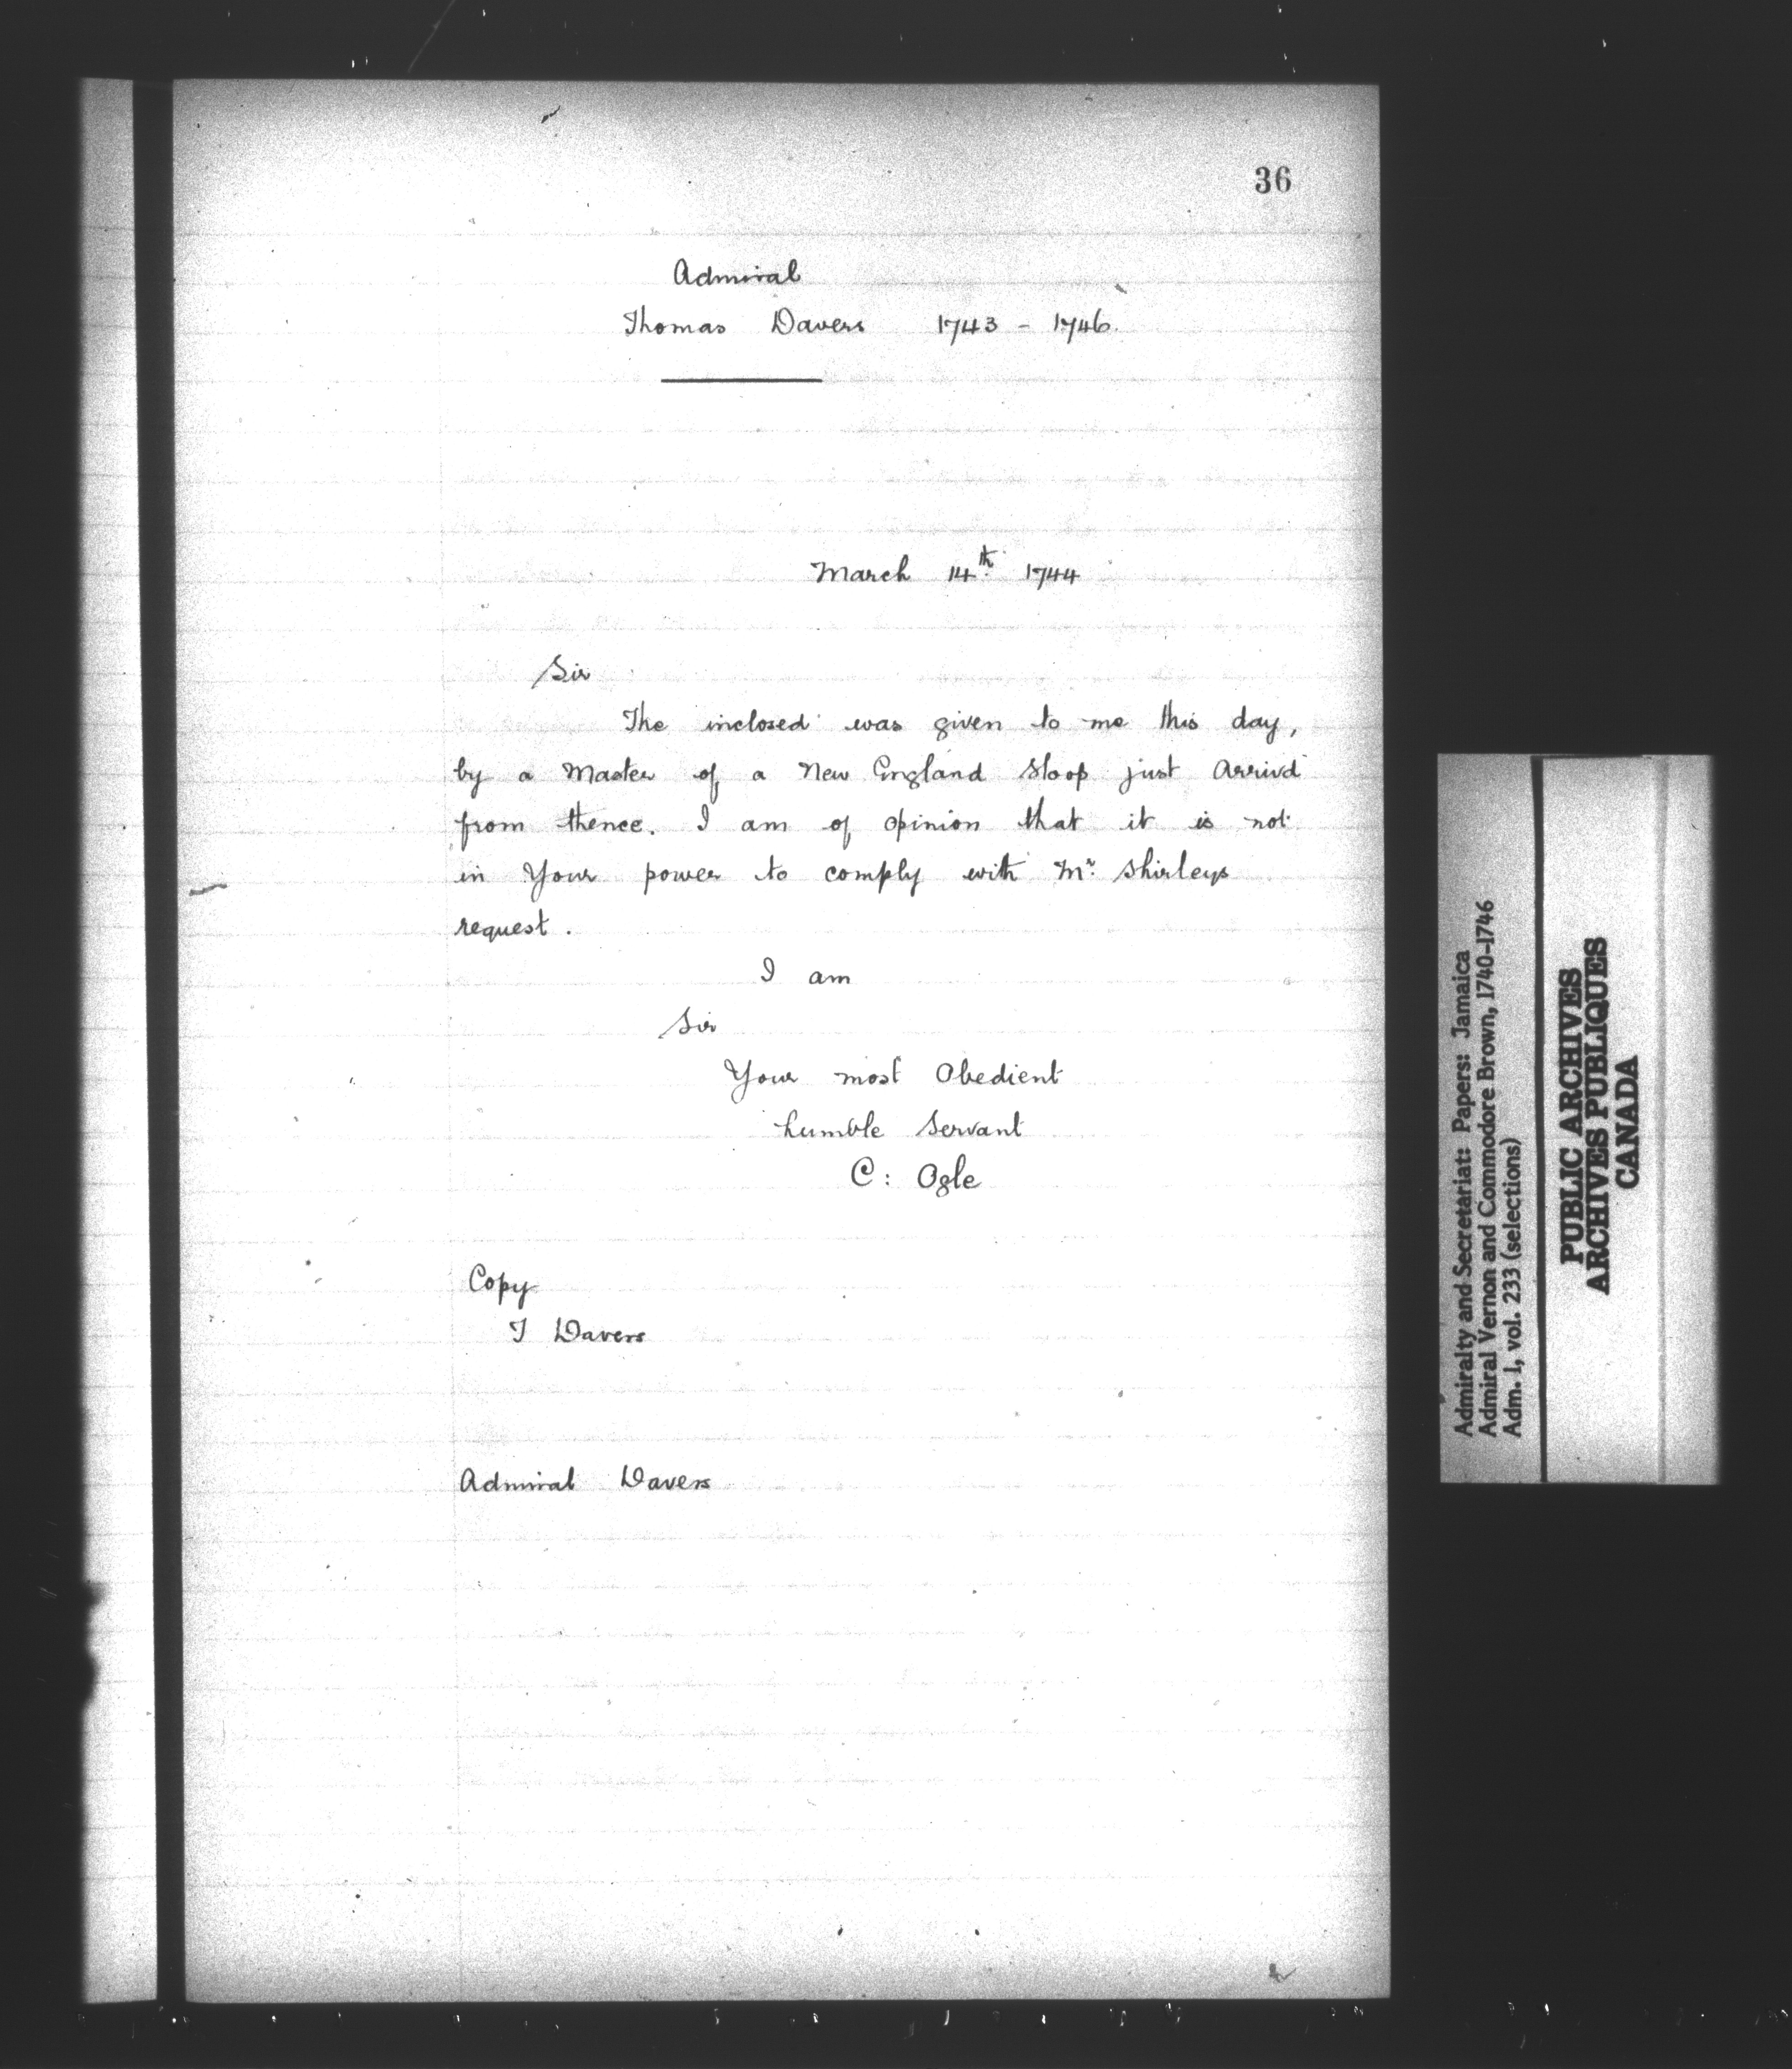 36
Admiral
Thomas Davers 1743 - 1746.
March 14th. 1744
Sir
The inclosed was given to me this day,
by a Master of a New England Sloop just Arrivd
from thence. I am of opinion that it is not
in Your power to comply with Mr. Shirleys
request.
I am
Sir
Your most Obedient
humble Servant
C: Ogle
Copy
T Davers
Admiral Davers
Admiralty and Secretariat: Papers: Jamaica
Admiral Vernon and Commodore Brown, 1740-1746
Adm. 1, vol. 233 (selections)
PUBLIC ARCHIVES
ARCHIVES PUBLIQUES
CANADA